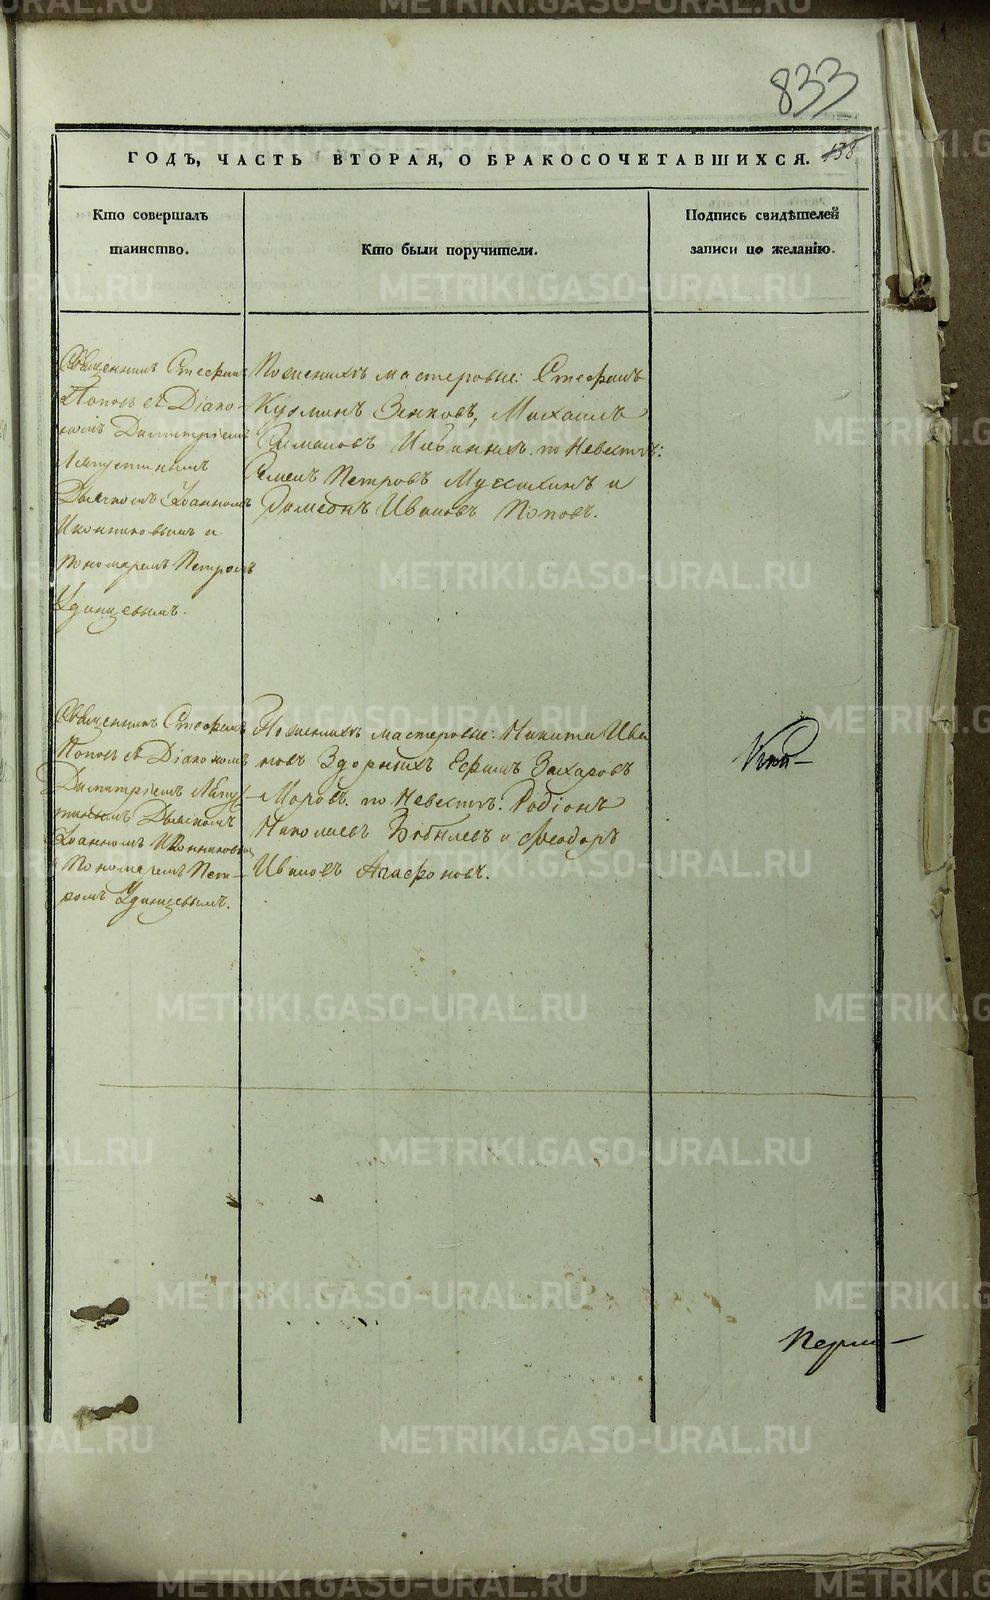 833
ГОДЪ, ЧАСТЬ ВТОРАЯ, О БРАКОСОЧЕТАВШИХСЯ.
138
Кто совершалъ
таинство.
Кто были поручители.
Подпись свидѣтелей
записи по желанію.
Священникъ Стефанъ
Поповъ съ Діако-
номъ Димитріемъ
Лапустинымъ
Дьячкомъ Іоанномъ
Иконниковымъ и
пономаремъ Петромъ
Удинцевымъ.
По женихѣ мастеровые: Стефанъ
Кузминъ Зенковъ, Михаилъ
Симановъ Ильиныхъ. по Невестѣ:
Семенъ Петровъ и
Симеонъ Ивановъ Поповъ.
Священникъ Стефанъ
Поповъ съ Діакономъ
Димитріемъ Лапус-
тинымъ Дьячкомъ
Іоанномъ Иконниковым
и Пономаремъ Пет-
ромъ Удинцевымъ.
По женихѣ мастеровые: Никита Ива
новъ Здорныхъ Ефимъ Захаровъ
Моровъ. по Невестѣ: Родіонъ
Николаевъ Бобылевъ и Феодоръ
Ивановъ Агафоновъ.
METRIKI.GASO-URAL.RU